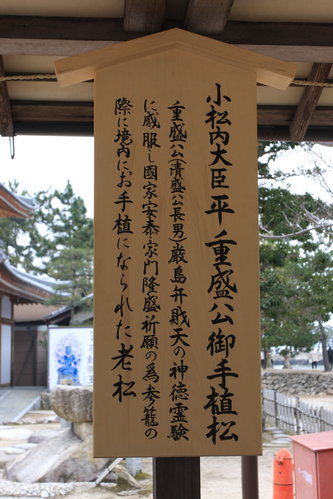 小松内大臣平重盛公御手植松
重盛公(清盛公長男)厳島弁財天の神徳霊験
に感服し國家安泰家門隆盛祈願の為参籠の
際に境内にお手植になられた老松